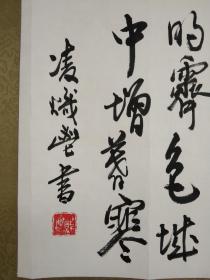 明霽色城
中增暮寒
凌熾𤯔書